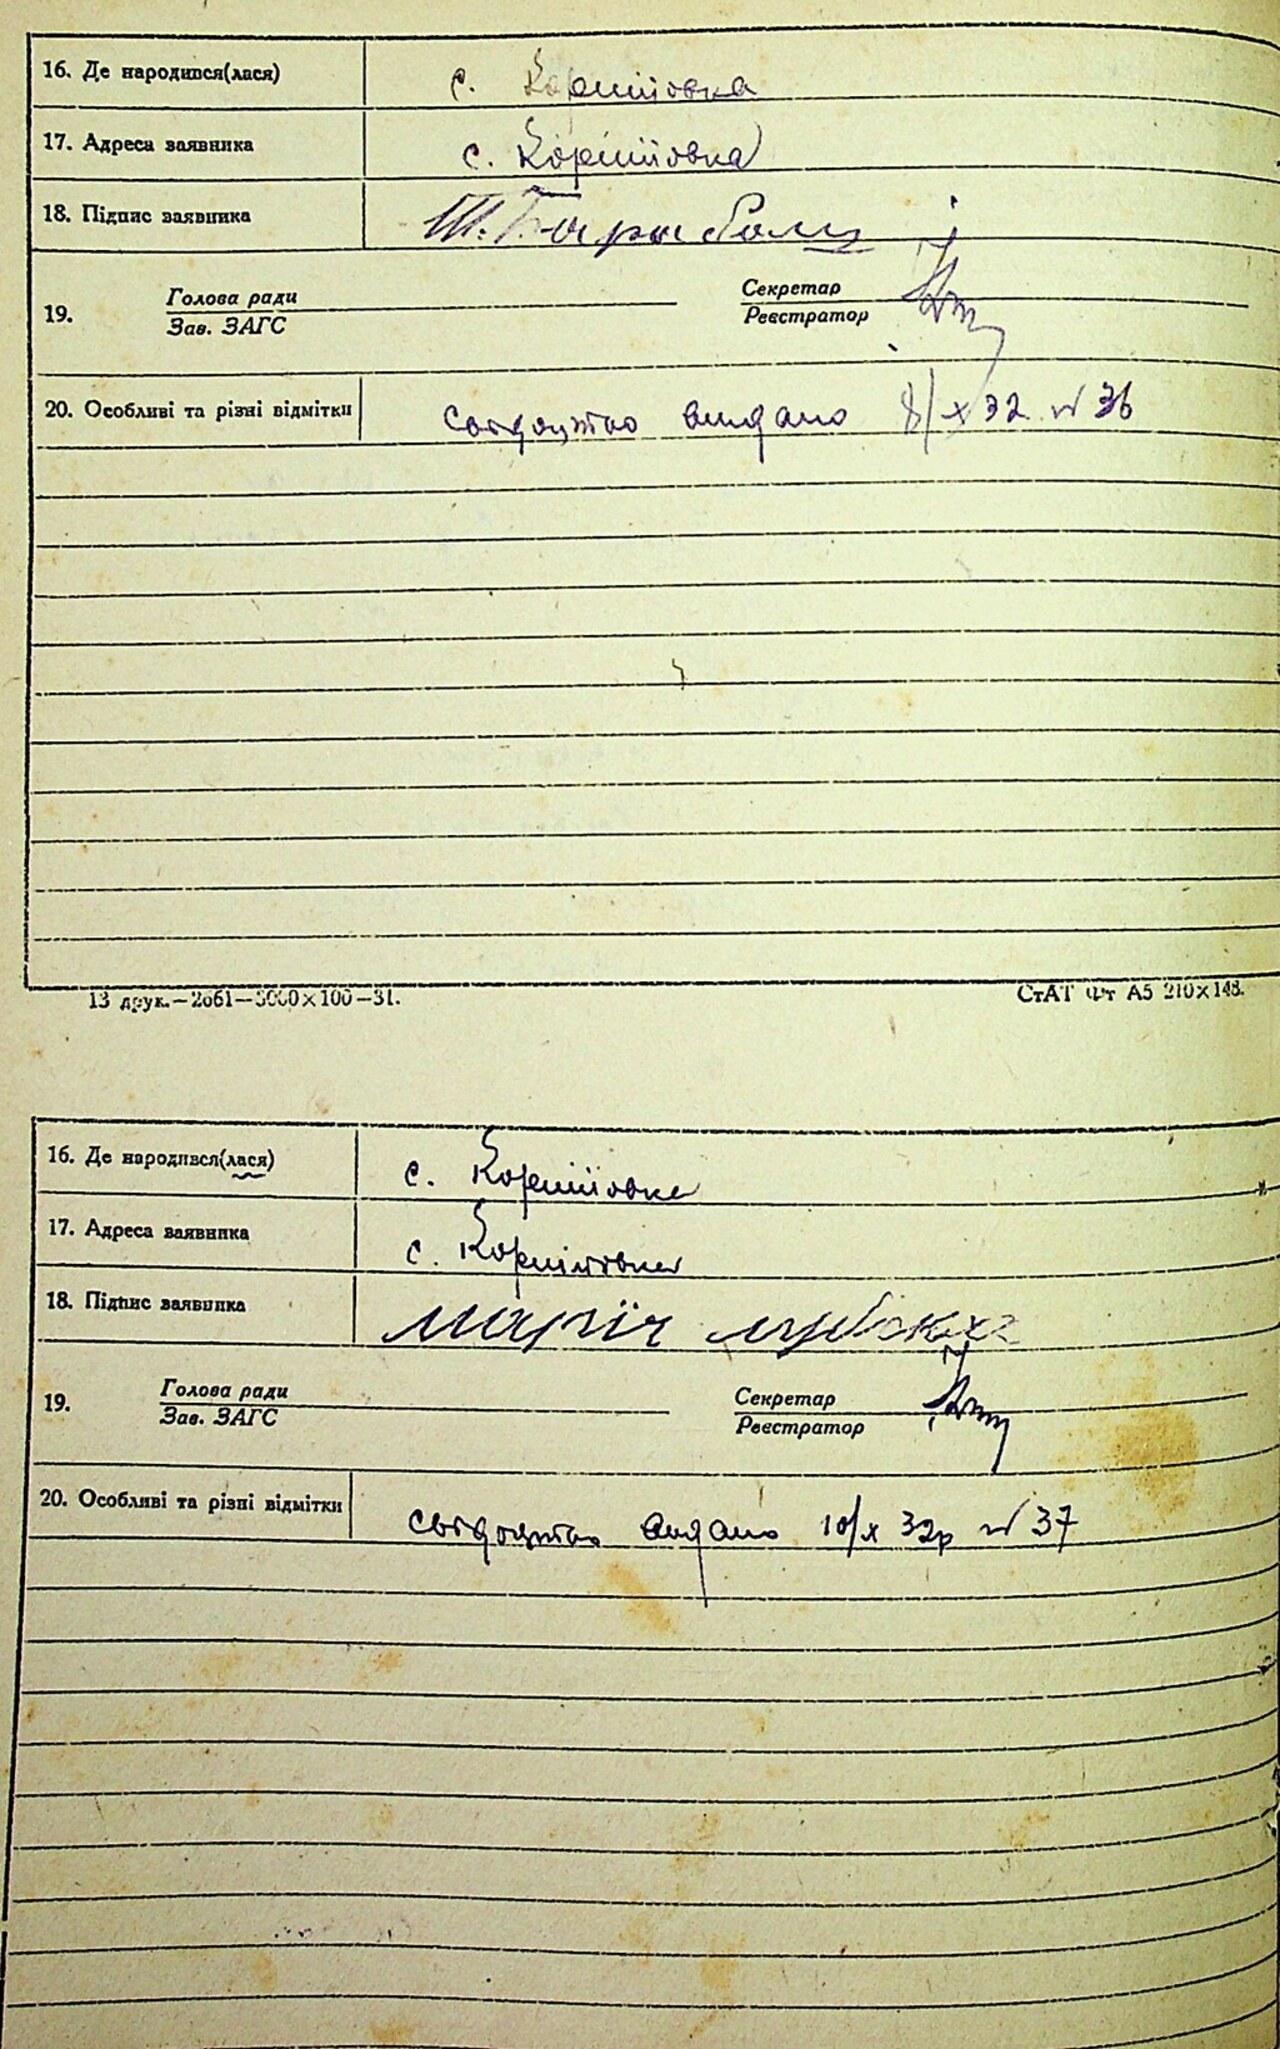 16. Де народився(лася) с. Корпиловка
17. Адреса заявника с. Корпиловка
18. Підпис заявника
Голова ради Секретар
19.
Зав. ЗАГС Реєстратор
20. Особливі та різні відмітки свідоцтво видано 8/х 32 № 36
13 друк.—2661—5000×100—31. СтАТ Фт А5 210×148.
16. Де народився(лася) с.
17. Адреса заявника с.
18. Підпис заявника Марія
Голова ради Секретар
19.
Зав. ЗАГС Реєстратор
20. Особливі та різні відмітки свідоцтво видано 10/х 32р № 37